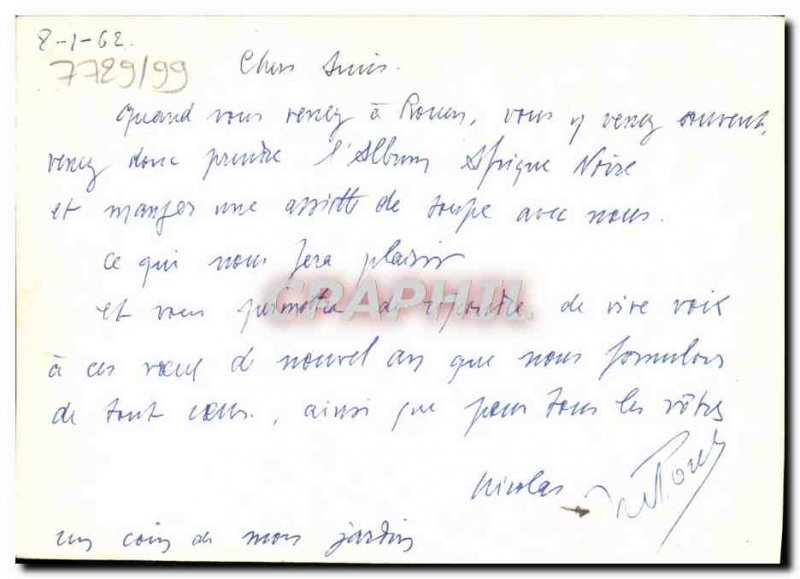 8-1-62.
7729/99
Chers Amis.
Quand vous venez à Rouen, vous y venez souvent,
venez donc prendre l'Album Afrique Noire
et manger une assiette de soupe avec nous.
ce qui nous fera plaisir
et vous permettra de répondre, de vive voix
CRAPHTL
à ces vœux de nouvel an que nous formulons
de tout cœur, ainsi que pour tous les vôtres
Nicolas
un coin de mon jardin